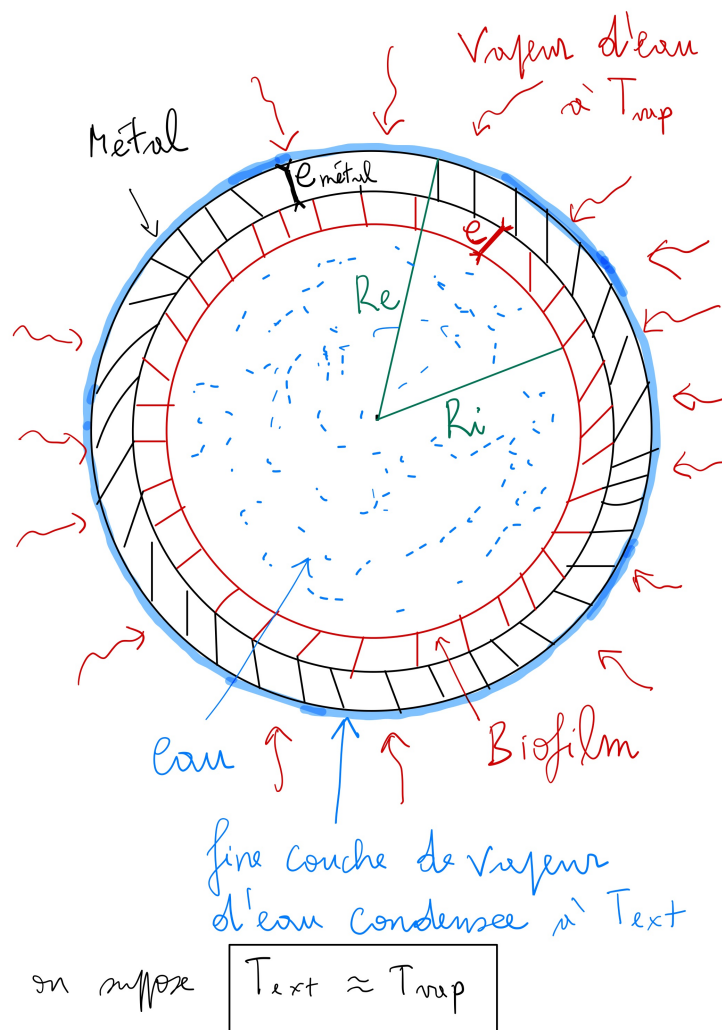 Vapeur d'eau
à Tvap
Métal
e métal
e
Re
Ri
eau
Biofilm
fine couche de vapeur
d'eau condensée à Text
on suppose Text ≈ Tvap